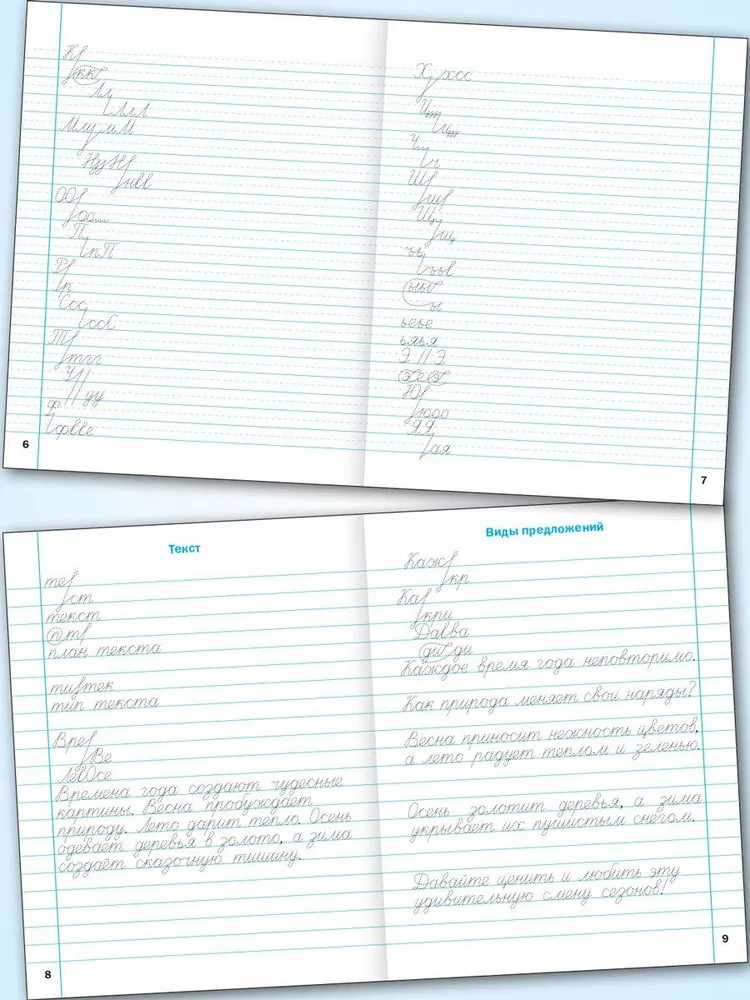 К
кк
Л
ллл
МмумМ
НуН
нвв
ОО
оа
П
пП
Р
р
Сос
ооС
Т
тгг
У//
//уу
Ф
фвве
6
Х хос
Ц
ц
Ч
ч
Ш
ш
Щ
щ
ъь
ъъв
ы
ы
ьеье
ьяья
Э // Э
Ю
юоо
ЯЯ
ая
7
Текст
те
ст
текст
пт
план текста
ти тек
тип текста
Вре
Ве
ЛеОсе
Времена года создают чудесные
картины. Весна пробуждает
природу. Лето дарит тепло. Осень
одевает деревья в золото, а зима
создаёт сказочную тишину.
8
Виды предложений
Каж
кр
Ка
кри
Давва
ди ди
Каждое время года неповторимо.
Как природа меняет свои наряды?
Весна приносит нежность цветов,
а лето радует теплом и зеленью.
Осень золотит деревья, а зима
укрывает их пушистым снегом.
Давайте ценить и любить эту
удивительную смену сезонов!
9